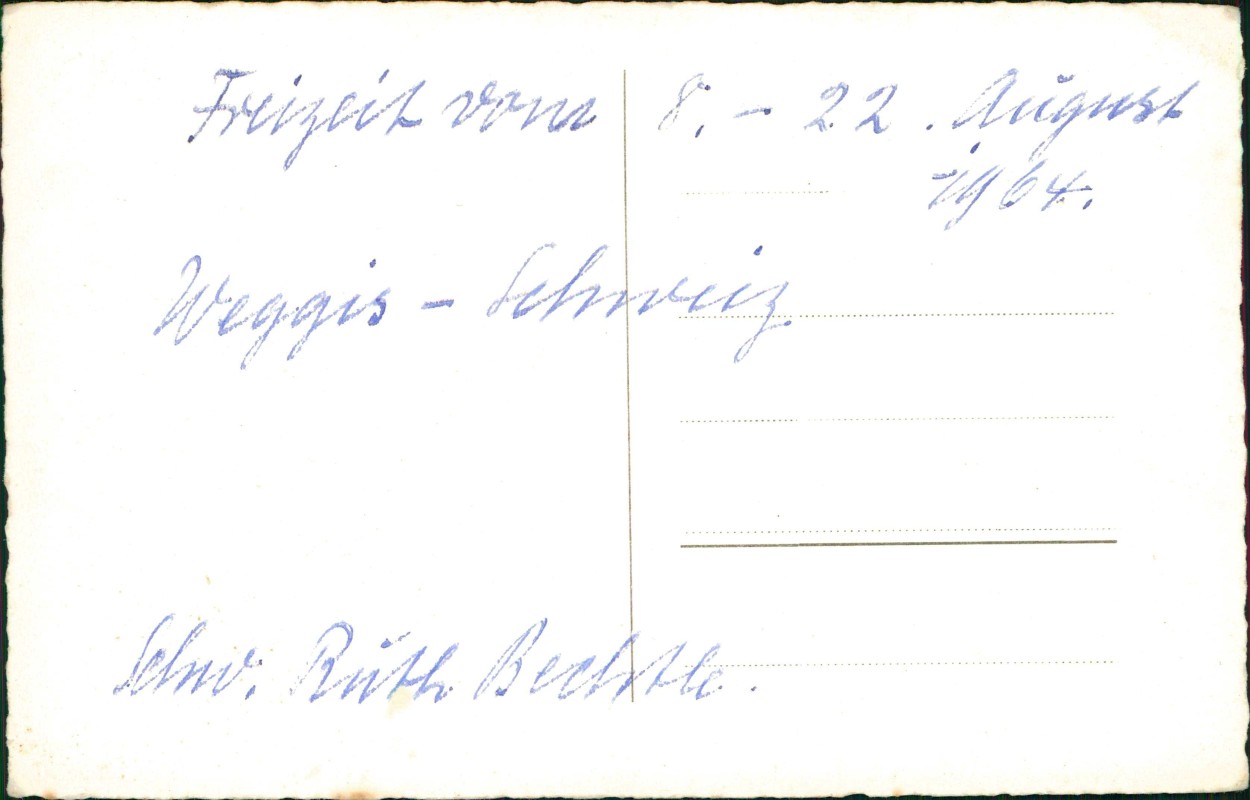 Freizeit vom 8. - 22. August
1964.
Weggis - Schweiz
Schw. Ruth Bechtle.